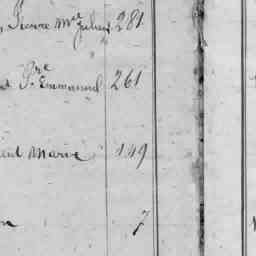 Pierre Mie Julien 281
Pre Emmanuel 261
Marie 149
7